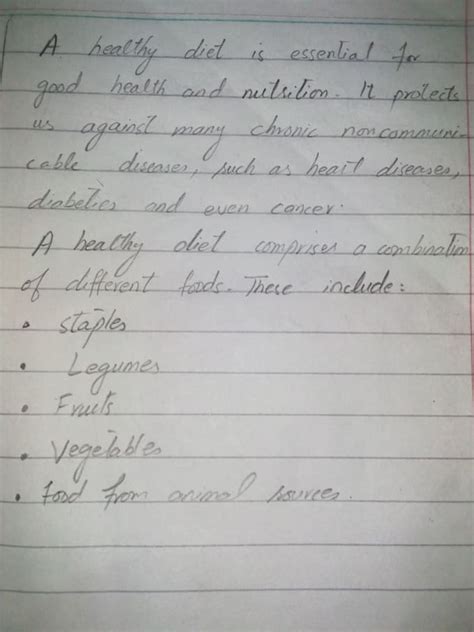 A healthy diet is essential for
good health and nutrition. It protects
us against many chronic noncommuni-
cable diseases, such as heart diseases,
diabetics and even cancer.
A healthy diet comprises a combination
of different foods. These include:
• Staples
• Legumes
• Fruits
• Vegetables
• Food from animal sources.